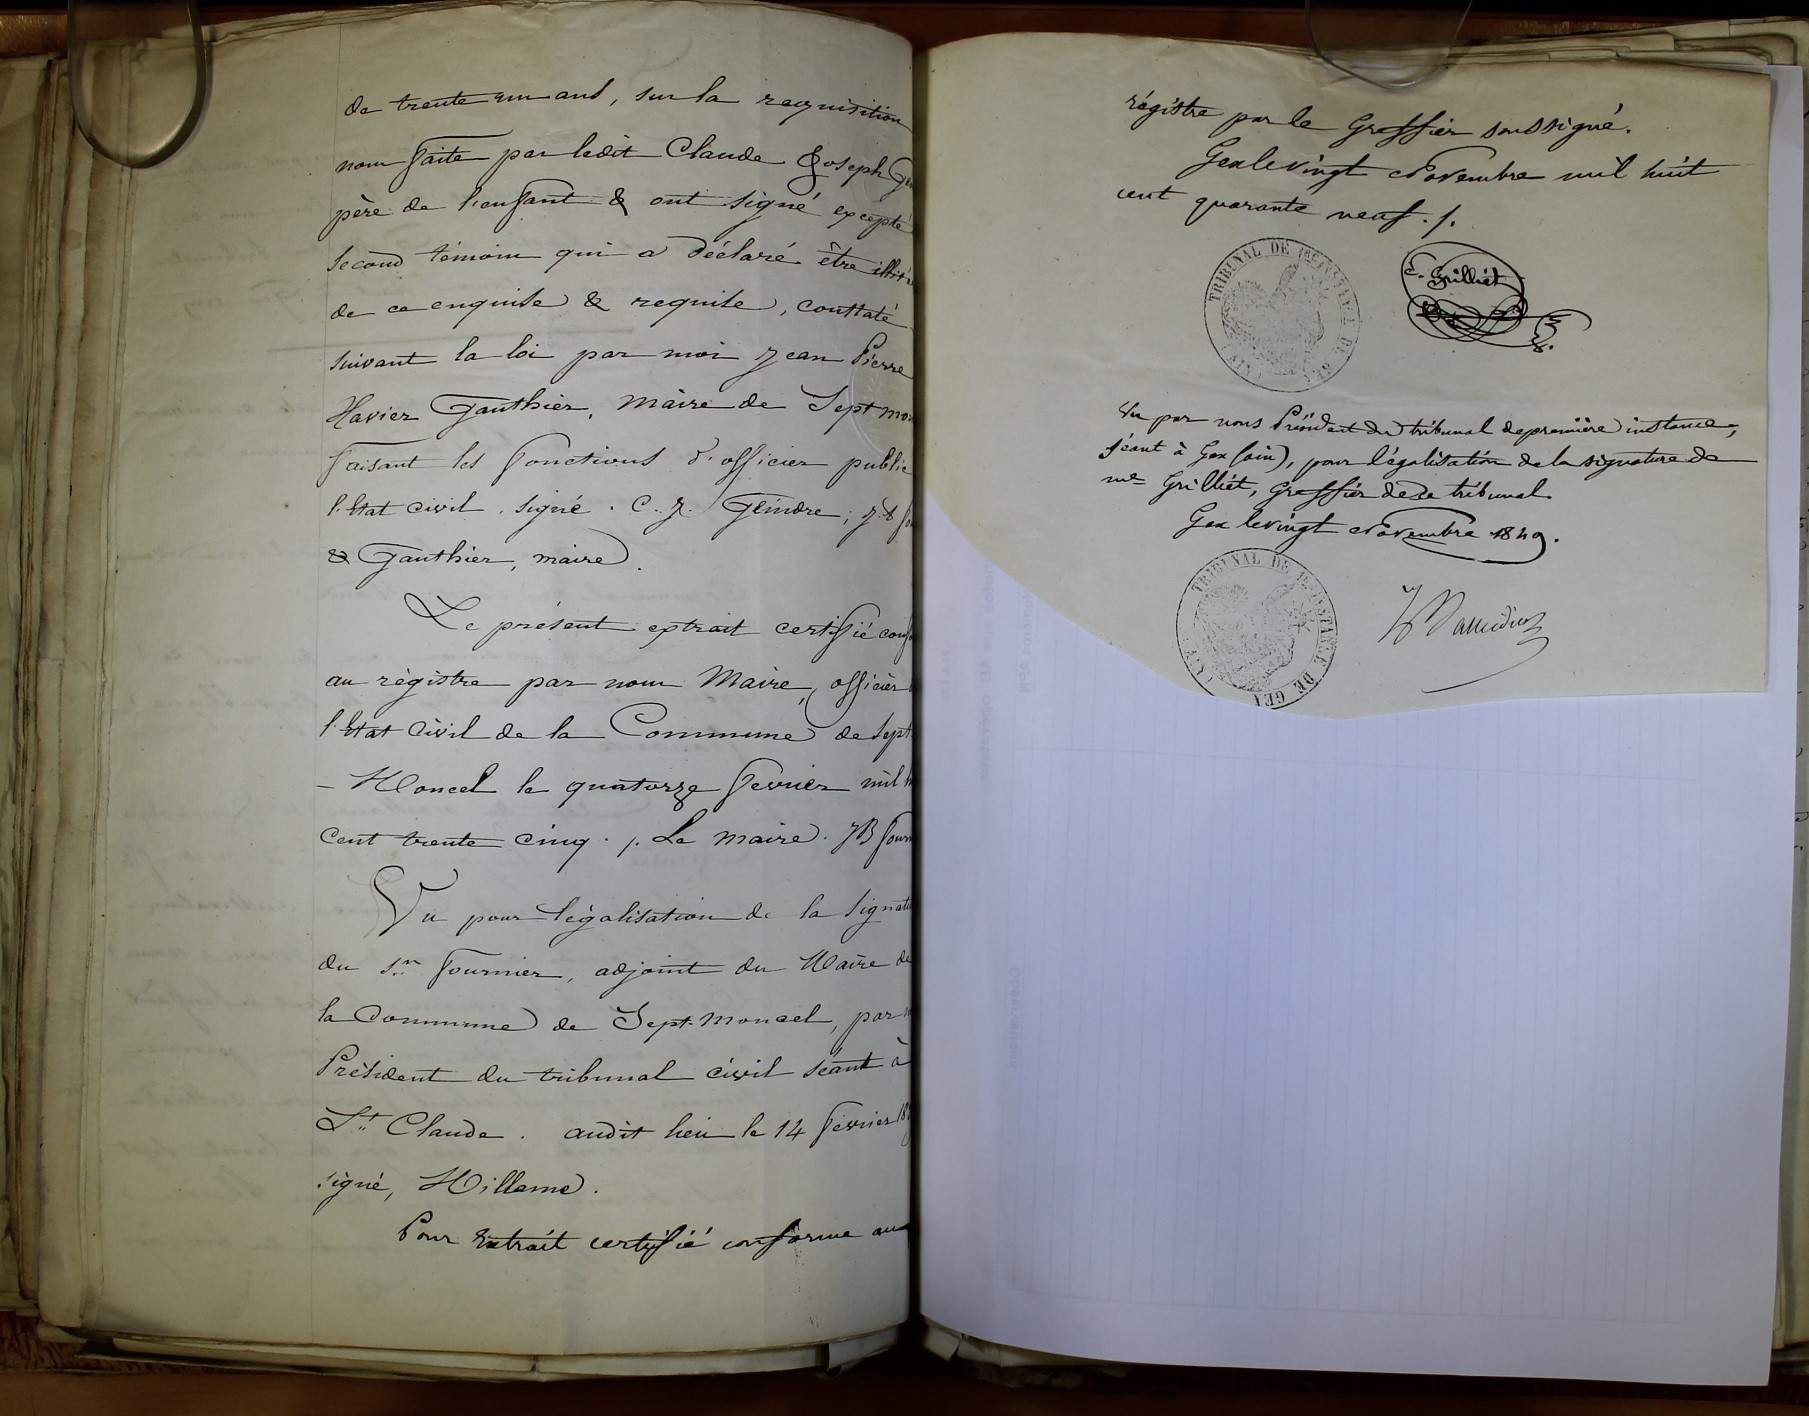 de trente un ans, sur la requisition
nous faite par ledit Claude Joseph
père de l'enfant & ont signé excepté
second témoin qui a déclaré être
de ce enquise & requise, constaté
suivant la loi par moi Jean Pierre
Xavier Gauthier, maire de Sept
faisant les fonctions d'officier public
l'Etat civil. signé. C. J. Geindre;
& Gauthier, maire.
Le présent extrait certifié
au régistre par nous Maire, officier
l'Etat Civil de la Commune de Sept
- Moncel le quatorze fevrier mil
cent trente cinq. /. Le maire. JB
Vu pour légalisation de la
du Sr. Fournier, adjoint du Maire de
la Commune de Sept-Moncel, par
Président du tribunal civil séant à
St. Claude. audit lieu le 14 février
signé,
Pour Extrait certifié conforme au
régistre par le Greffier soussigné.
Gex le vingt Novembre mil huit
cent quarante neuf. /.
TRIBUNAL DE 1ERE INSTANCE DE GEX (AIN)
Grilliet
Vu par nous Président du tribunal de première instance,
séant à Gex (ain), pour légalisation de la signature de
me Grilliet, Greffier de ce tribunal.
Gex le vingt Novembre 1849.
TRIBUNAL DE 1ERE INSTANCE DE GEX (AIN)